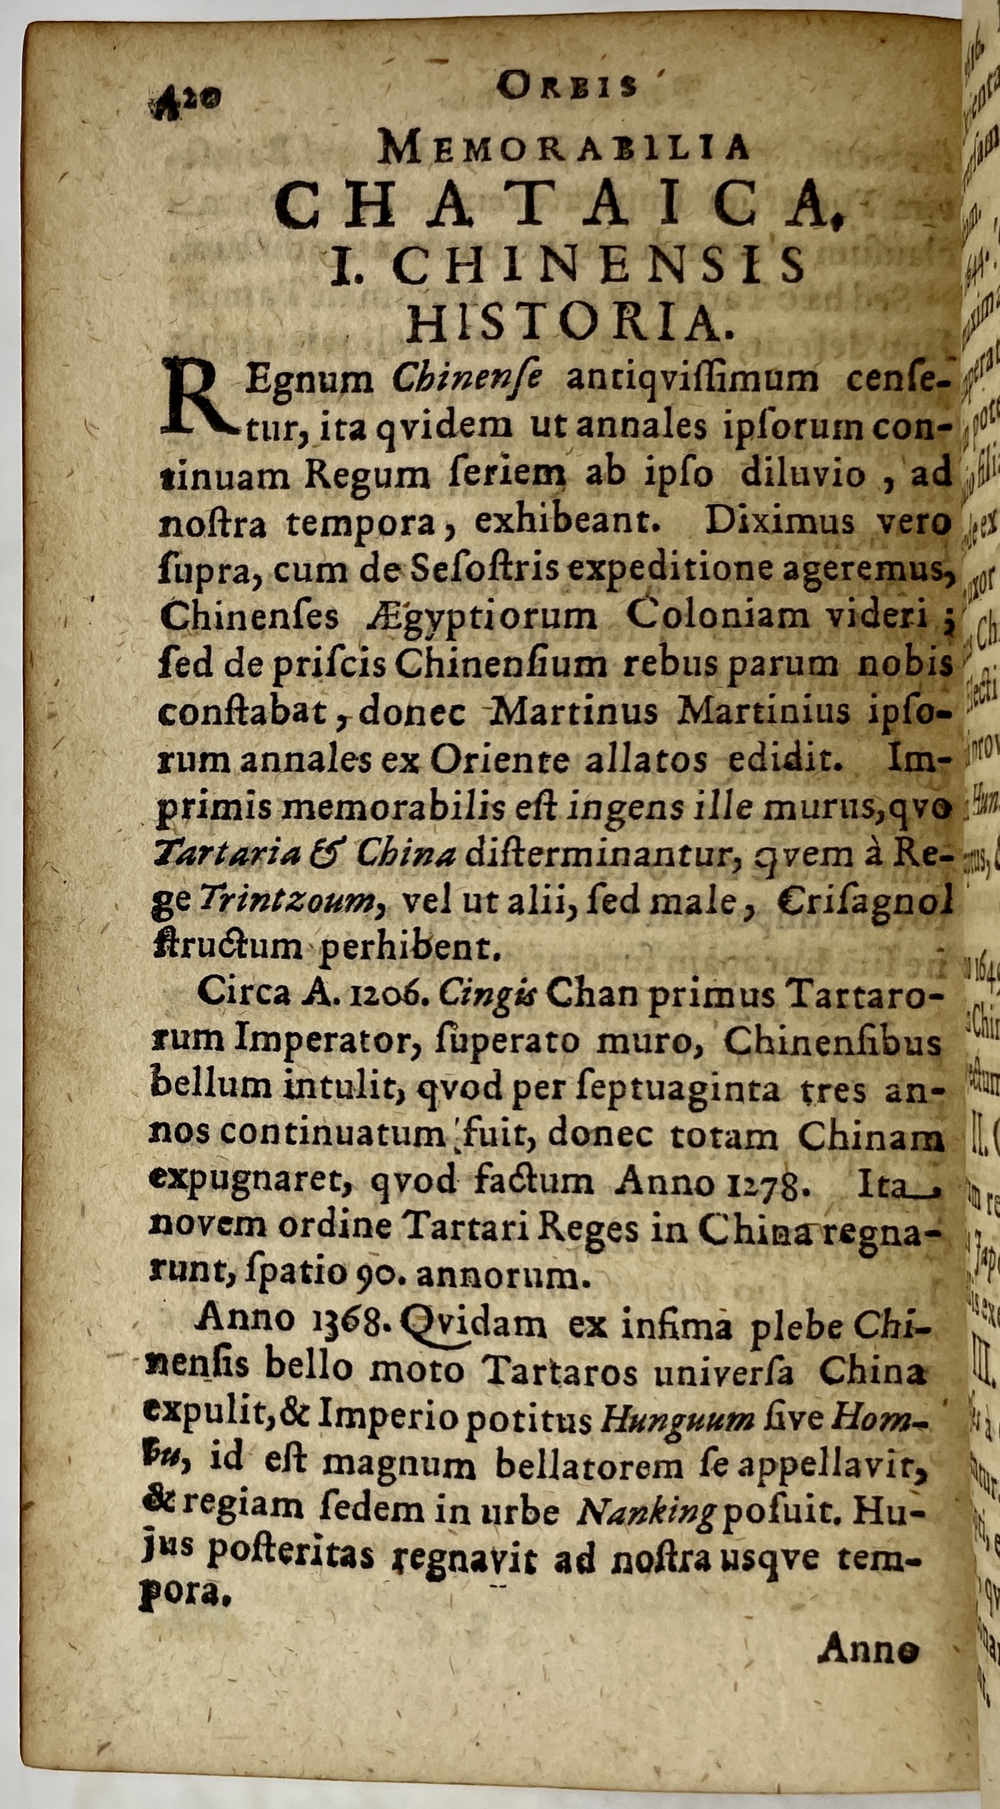 420 ORBIS
MEMORABILIA
CHATAICA.
I. CHINENSIS
HISTORIA.
REgnum Chinenſe antiqviſſimum cenſe-
tur, ita qvidem ut annales ipſorum con-
tinuam Regum ſeriem ab ipſo diluvio, ad
noſtra tempora, exhibeant. Diximus vero
ſupra, cum de Seſoſtris expeditione ageremus,
Chinenſes Ægyptiorum Coloniam videri;
ſed de priſcis Chinenſium rebus parum nobis
conſtabat, donec Martinus Martinius ipſo-
rum annales ex Oriente allatos edidit. Im-
primis memorabilis eſt ingens ille murus, qvo
Tartaria & China diſterminantur, qvem à Re-
ge Trintzoum, vel ut alii, ſed male, Criſagnol
ſtructum perhibent.
Circa A. 1206. Cingis Chan primus Tartaro-
rum Imperator, ſuperato muro, Chinenſibus
bellum intulit, qvod per ſeptuaginta tres an-
nos continuatum fuit, donec totam Chinam
expugnaret, qvod factum Anno 1278. Ita
novem ordine Tartari Reges in China regna-
runt, ſpatio 90. annorum.
Anno 1368. Qvidam ex infima plebe Chi-
nenſis bello moto Tartaros univerſa China
expulit, & Imperio potitus Hunguum ſive Hom-
bu, id eſt magnum bellatorem ſe appellavit,
& regiam ſedem in urbe Nanking poſuit. Hu-
jus poſteritas regnavit ad noſtra usqve tem-
pora.
Anno